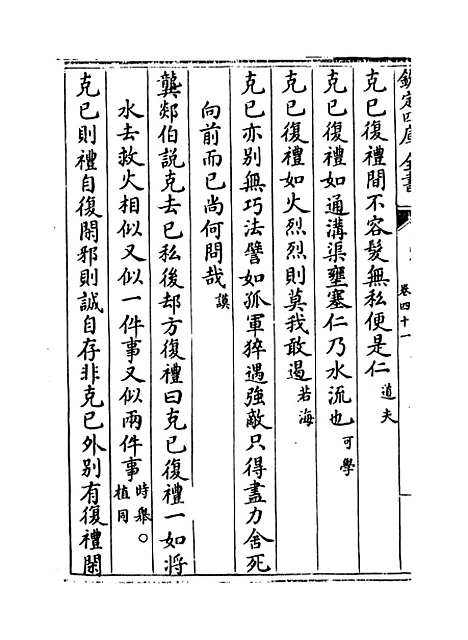 欽定四庫全書
卷四十一
克已復禮間不容髮無私便是仁道夫
克已復禮如通溝渠壅塞仁乃水流也可學
克已復禮如火烈烈則莫我敢遏若海
克已亦别無巧法譬如孤軍猝遇強敵只得盡力舍死
向前而已尚何問哉謨
龔郯伯説克去已私後却方復禮曰克已復禮一如將
水去救火相似又似一件事又似兩件事時舉○植同
克已則禮自復閑邪則誠自存非克已外别有復禮閑